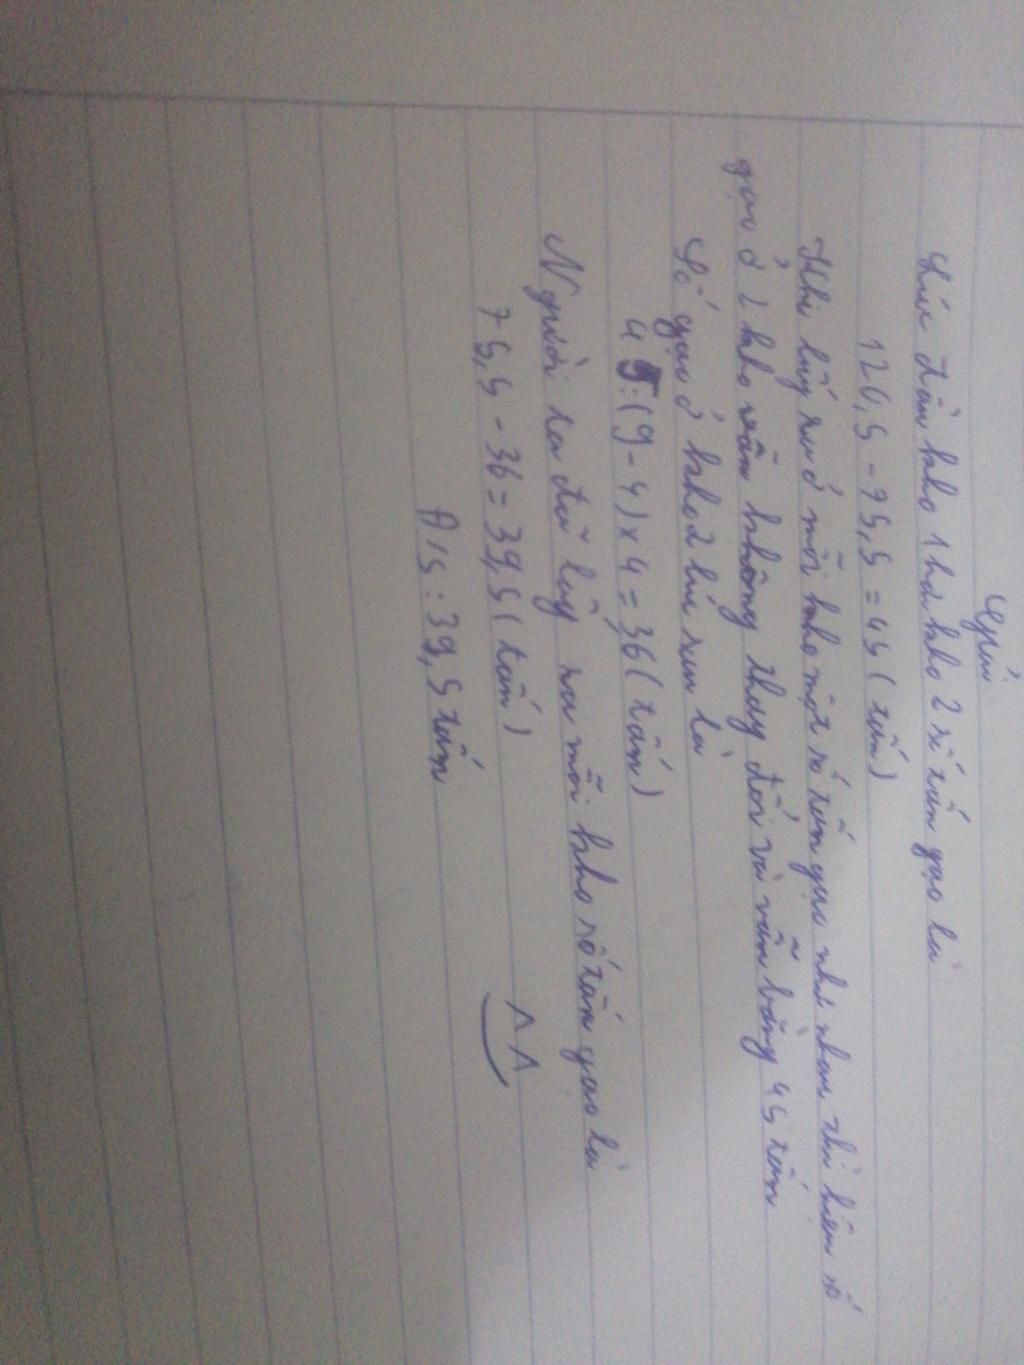 Giải
Lúc đầu kho 1 hơn kho 2 số tấn gạo là
120,5 - 75,5 = 45 (tấn)
Khi lấy ra ở mỗi kho một số tấn gạo như nhau thì hiệu số
gạo ở 2 kho vẫn không thay đổi và vẫn bằng 45 tấn
Số gạo ở kho 2 lúc sau là
45 : (9 - 4) x 4 = 36 (tấn)
Người ta đã lấy ra mỗi kho số tấn gạo là
75,5 - 36 = 39,5 (tấn)
Đ/S : 39,5 tấn